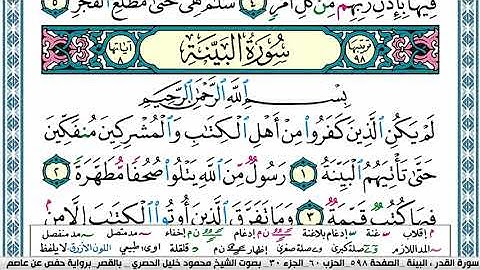 فِيهَا بِإِذْنِ رَبِّهِم مِّن كُلِّ أَمْرٍ ٤ سَلَامٌ هِيَ حَتَّىٰ مَطْلَعِ الْفَجْرِ ٥
ترتيبها ٩٨ سُورَةُ الْبَيِّنَةِ آياتها ٨
بِسْمِ اللَّهِ الرَّحْمَٰنِ الرَّحِيمِ
لَمْ يَكُنِ الَّذِينَ كَفَرُوا مِنْ أَهْلِ الْكِتَابِ وَالْمُشْرِكِينَ مُنفَكِّينَ
حَتَّىٰ تَأْتِيَهُمُ الْبَيِّنَةُ ١ رَسُولٌ مِّنَ اللَّهِ يَتْلُوا صُحُفًا مُّطَهَّرَةً ٢
فِيهَا كُتُبٌ قَيِّمَةٌ ٣ وَمَا تَفَرَّقَ الَّذِينَ أُوتُوا الْكِتَابَ إِلَّا مِن
إقلاب غنة إدغام بلاغنة إدغام إخفاء مدمتصل مدمنفصل
المداللازم صلة كبرى صلة صغرى إظهار قلقلة أوى، طبيعي اللون الأزرق لا يلفظ
سورة القدر ، البينة _ الصفحة ٥٩٨ _ الحزب ٦٠ _ الجزء ٣٠ _ بصوت الشيخ محمود خليل الحصري _ بالقصر_ برواية حفص عن عاصم